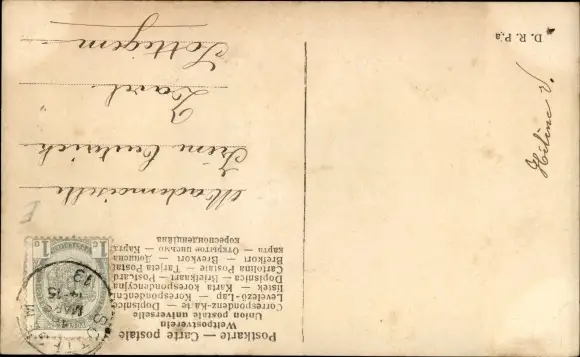 Postkarte — Carte postale
Weltpostverein
Union postale universelle
Correspondenz-Karte — Dopisnice
Levelezö-Lap — Korespondenční
listek — Karta korespondencyjna
Dopisnica — Briefkaart — Postcard
Cartolina Postale — Tarjeta Postal
Brefkort — Brevkort — Došci
карта — Открытое письмо — Карта
кореспонденційна
Mademoiselle
Irèn
Zavel
Sottegem
1 c 1 c
MAR
13
D. R. P.a
Hélène V.